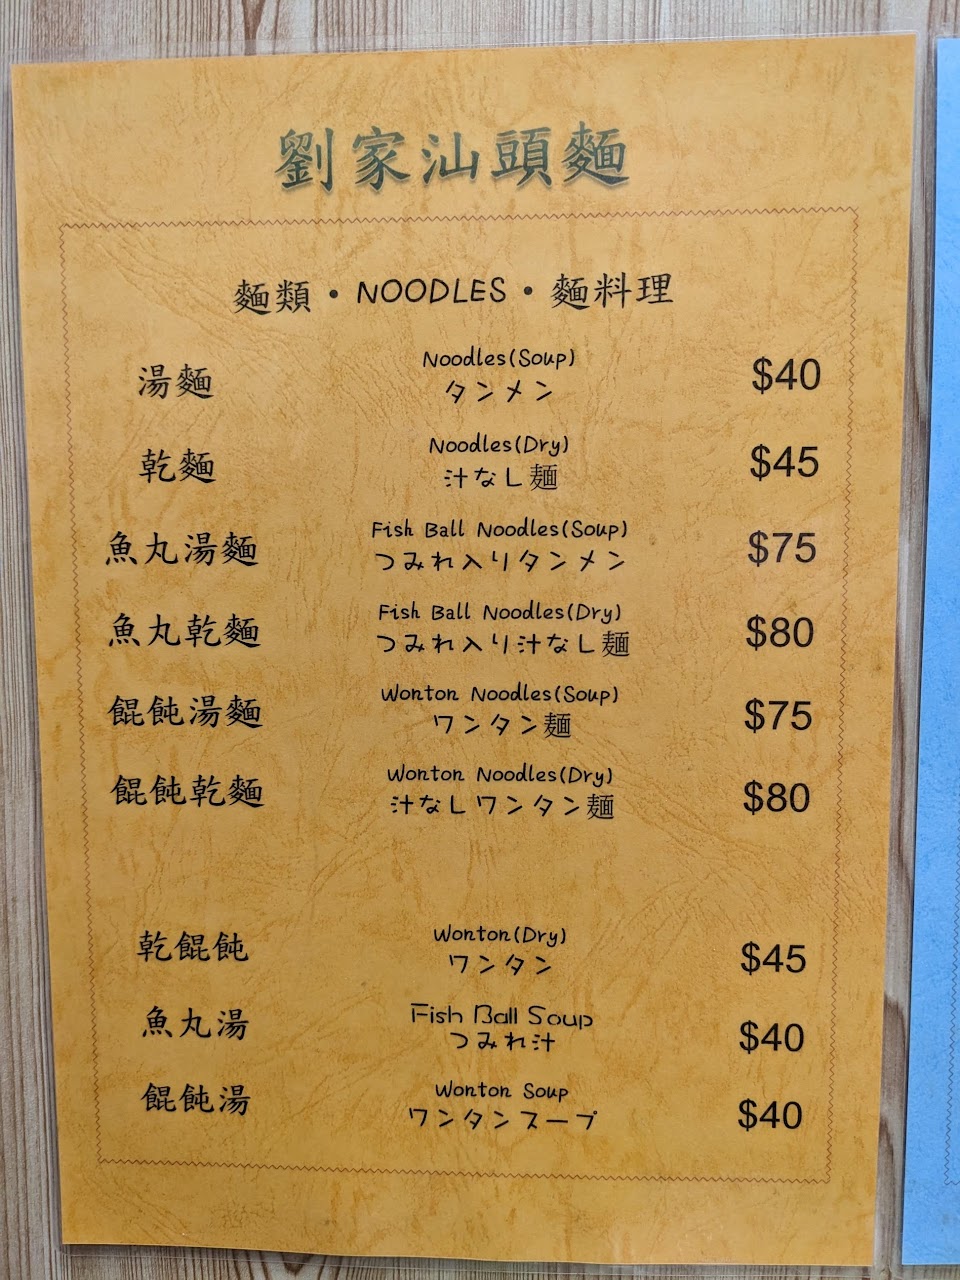 劉家汕頭麵
麵類・NOODLES・麵料理
湯麵
Noodles(Soup)
タンメン
$40
乾麵
Noodles(Dry)
汁なし麺
$45
魚丸湯麵
Fish Ball Noodles(Soup)
つみれ入りタンメン
$75
魚丸乾麵
Fish Ball Noodles(Dry)
つみれ入り汁なし麺
$80
餛飩湯麵
Wonton Noodles(Soup)
ワンタン麺
$75
餛飩乾麵
Wonton Noodles(Dry)
汁なしワンタン麺
$80
乾餛飩
Wonton(Dry)
ワンタン
$45
魚丸湯
Fish Ball Soup
つみれ汁
$40
餛飩湯
Wonton Soup
ワンタンスープ
$40